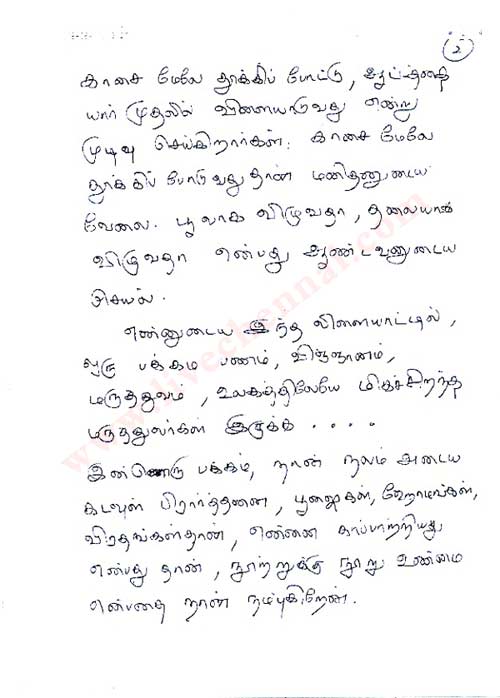 2
காசை மேலே தூக்கிப் போட்டு, ஆட்டத்தை
யார் முதலில் விளையாடுவது என்று
முடிவு செய்கிறார்கள்; காசை மேலே
தூக்கிப் போடுவதுதான் மனிதனுடைய
வேலை. பூவாக விழுவதா, தலையாக
விழுவதா என்பது ஆண்டவனுடைய
செயல்.
என்னுடைய இந்த விளையாட்டில்,
ஒரு பக்கம் பணம், விஞ்ஞானம்,
மருத்துவம், உலகத்திலேயே மிகச்சிறந்த
மருத்துவர்கள் இருக்க ....
இன்னொரு பக்கம், நான் நலம் அடைய
கடவுள் பிரார்த்தனை, பூஜைகள், ஹோமங்கள்,
விரதங்கள்தான், என்னை காப்பாற்றியது
என்பது தான், நூற்றுக்கு நூறு உண்மை
என்பதை நான் நம்புகிறேன்.
www.livechennai.com